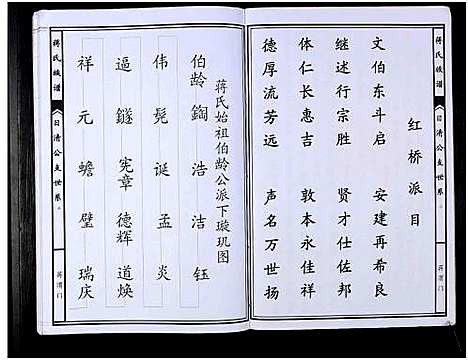 蒋氏族谱
日清公支世系
红桥派目
文伯东斗启 安建再希良
继述行宗胜 贤才仕佐邦
体仁长惠吉 敦本永佳祥
德厚流芳远 声名万世扬
蒋渭门
蒋氏族谱
日清公支世系
蒋氏始祖伯龄公派下璇玑图
伯龄 鋾 浩 洁 钰
伟 髡 诞 孟 炎
逼 鐩 宪章 德辉 道焕
祥 元 蟾 璧 瑞庆
蒋渭门